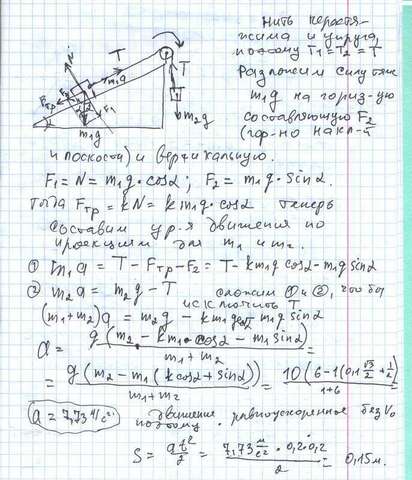 Нить нерастя-
жима и упруга,
поэтому T₁=T₂=T
Разложим силу тяж
m₁g на гориз-ую
составляющую F₂
(гор-но накл-й
и плоскости) и вертикальную.
N
T
T
T
m₁g
Fтр
F₂
F₁
α
m₁g
m₂g
F₁ = N = m₁g·cosα ; F₂ = m₁g·sinα.
тогда Fтр = kN = k m₁g·cosα теперь
составим ур-я движения по
проекциям для m₁ и m₂.
① m₁a = T - Fтр - F₂ = T - km₁g cosα - m₁g sinα
② m₂a = m₂g - T сложим ① и ②, что бы
исключить T
(m₁+m₂)a = m₂g - km₁g cosα - m₁g sinα
a = g(m₂ - km₁·cosα - m₁ sinα) / m₁+m₂ =
= g(m₂ - m₁(k cosα + sinα)) / m₁+m₂ = 10(6-1(0,1 √3/2 + 1/2) / 1+6
a = 7,73 м/с². движение равноускоренное без V₀
поэтому
S = at²/2 = 7,73 м/с² · 0,2·0,2 / 2 = 0,15м.